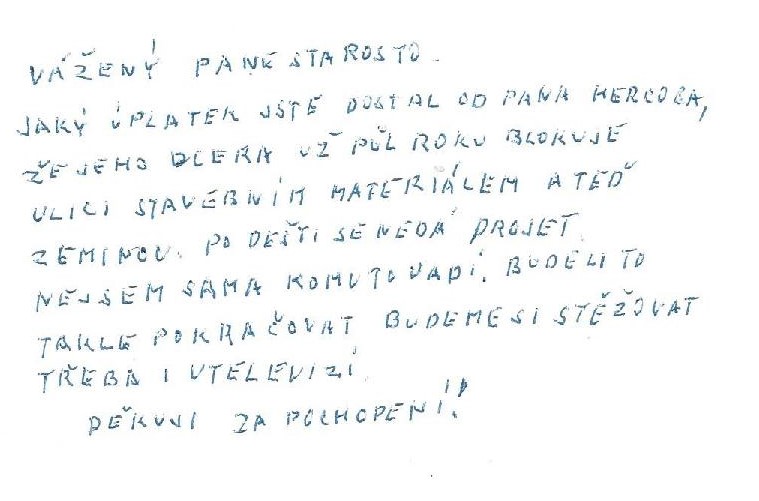 VÁŽENÝ PANE STAROSTO.
JAKÝ ÚPLATEK JSTE DOSTAL OD PANA HERCOGA,
ŽE JEHO DCERA UŽ PŮL ROKU BLOKUJE
ULICI STAVEBNÍM MATERIÁLEM A TEĎ
ZEMINOU. PO DEŠTI SE NEDÁ PROJET.
NEJSEM SAMA KOMU TO VADÍ. BUDE LI TO
TAKLE POKRAČOVAT BUDEME SI STĚŽOVAT
TŘEBA I V TELEVIZI.
DĚKUJI ZA POCHOPENÍ!!